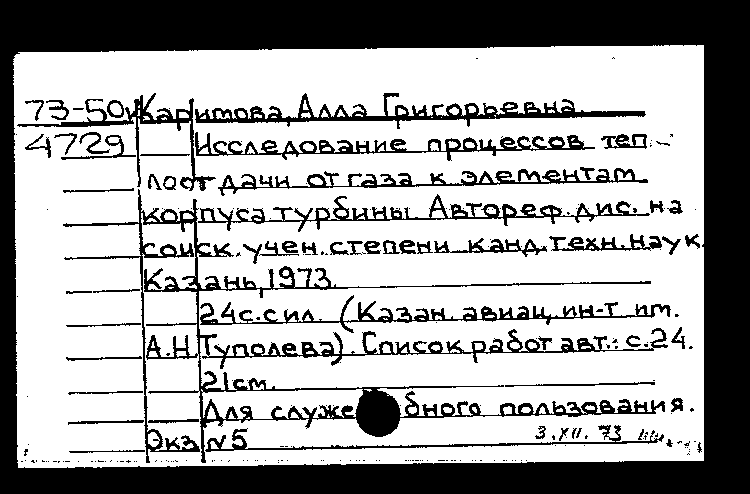 73-50и Каримова, Алла Григорьевна.
4729 Исследование процессов теп-
лоотдачи от газа к элементам
корпуса турбины. Автореф. дис. на
соиск. учен. степени канд. техн. наук.
Казань, 1973.
24с. с ил. (Казан. авиац. ин-т им.
А.Н. Туполева). Список работ авт.: с.24.
21см.
Для служебного пользования.
Экз. №5 3.XII.73